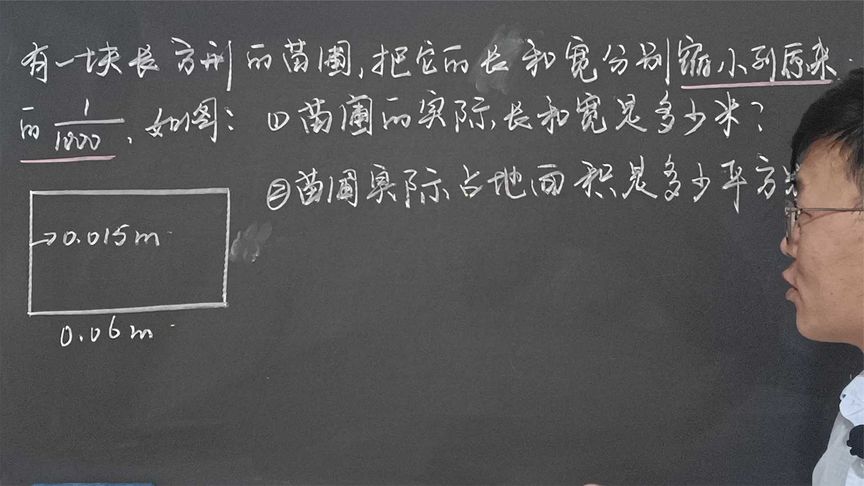 有一块长方形的苗圃,把它的长和宽分别缩小到原来
的1/1000,如图: ①苗圃的实际长和宽是多少米?
②苗圃实际占地面积是多少平方
0.015m
0.06m